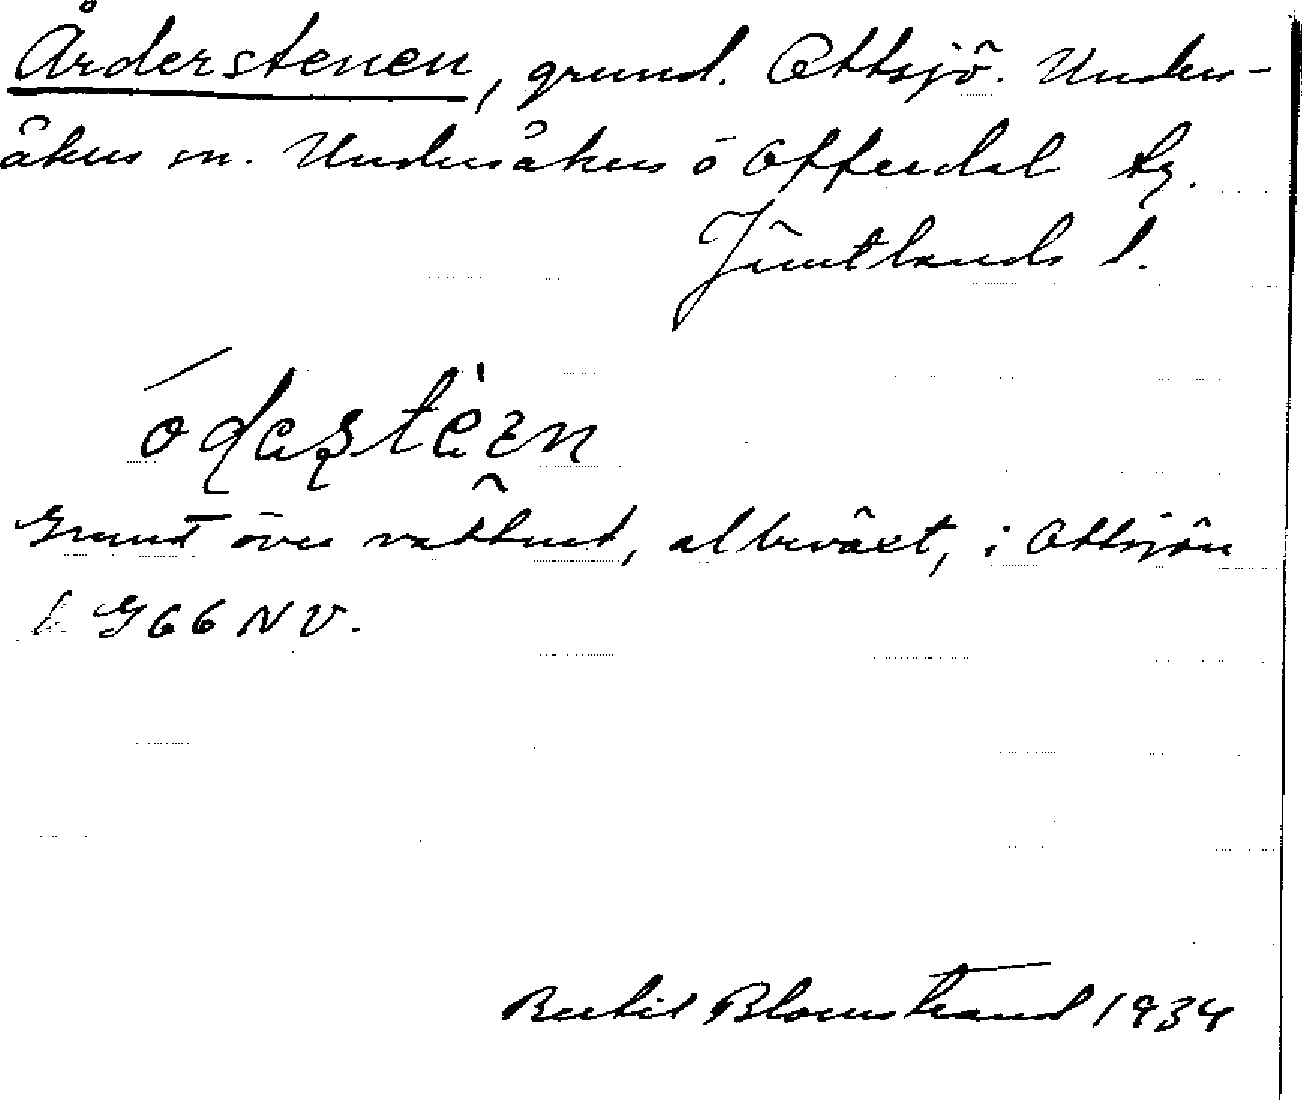 Årderstenen, grund. Ottsjö. Unders-
åkers sn. Undersåkers o Offerdal tg.
Jämtlands l.
Grund över vattnet, albeväxt, i Ottsjön
G66NV.
Bertil Blomstrand 1934